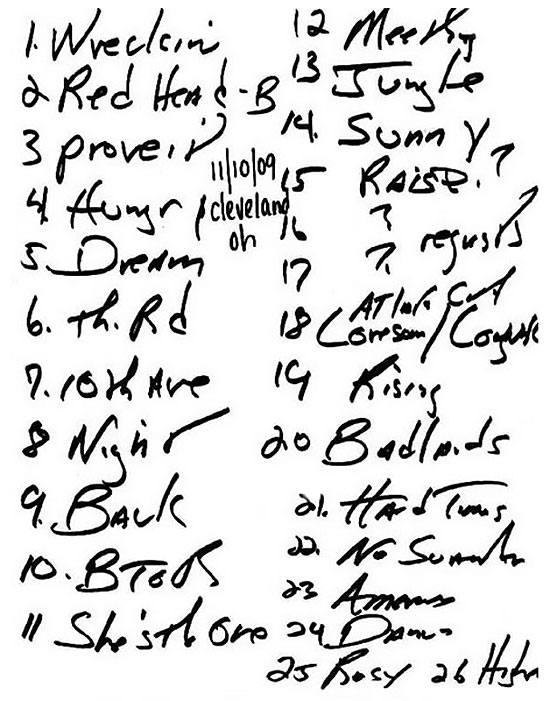 1. Wreckin
2 Red Head - B
3 Prove it
4 Hungr
11/10/09
cleveland
oh
5. Dream
6. th. Rd
7. 10th Ave
8 Night
9. Back
10. BTOR
11 She's the One
12 Meeting
13 Jungle
14. Sunny
15 RAISE. ?
16 ?
17 ? requests
18 Atlantic City
Lonesom /
19 Rising
20 Badlands
21. Hard Times
22. No Surrender
23 American
24 Dancin
25 Rosy 26 High